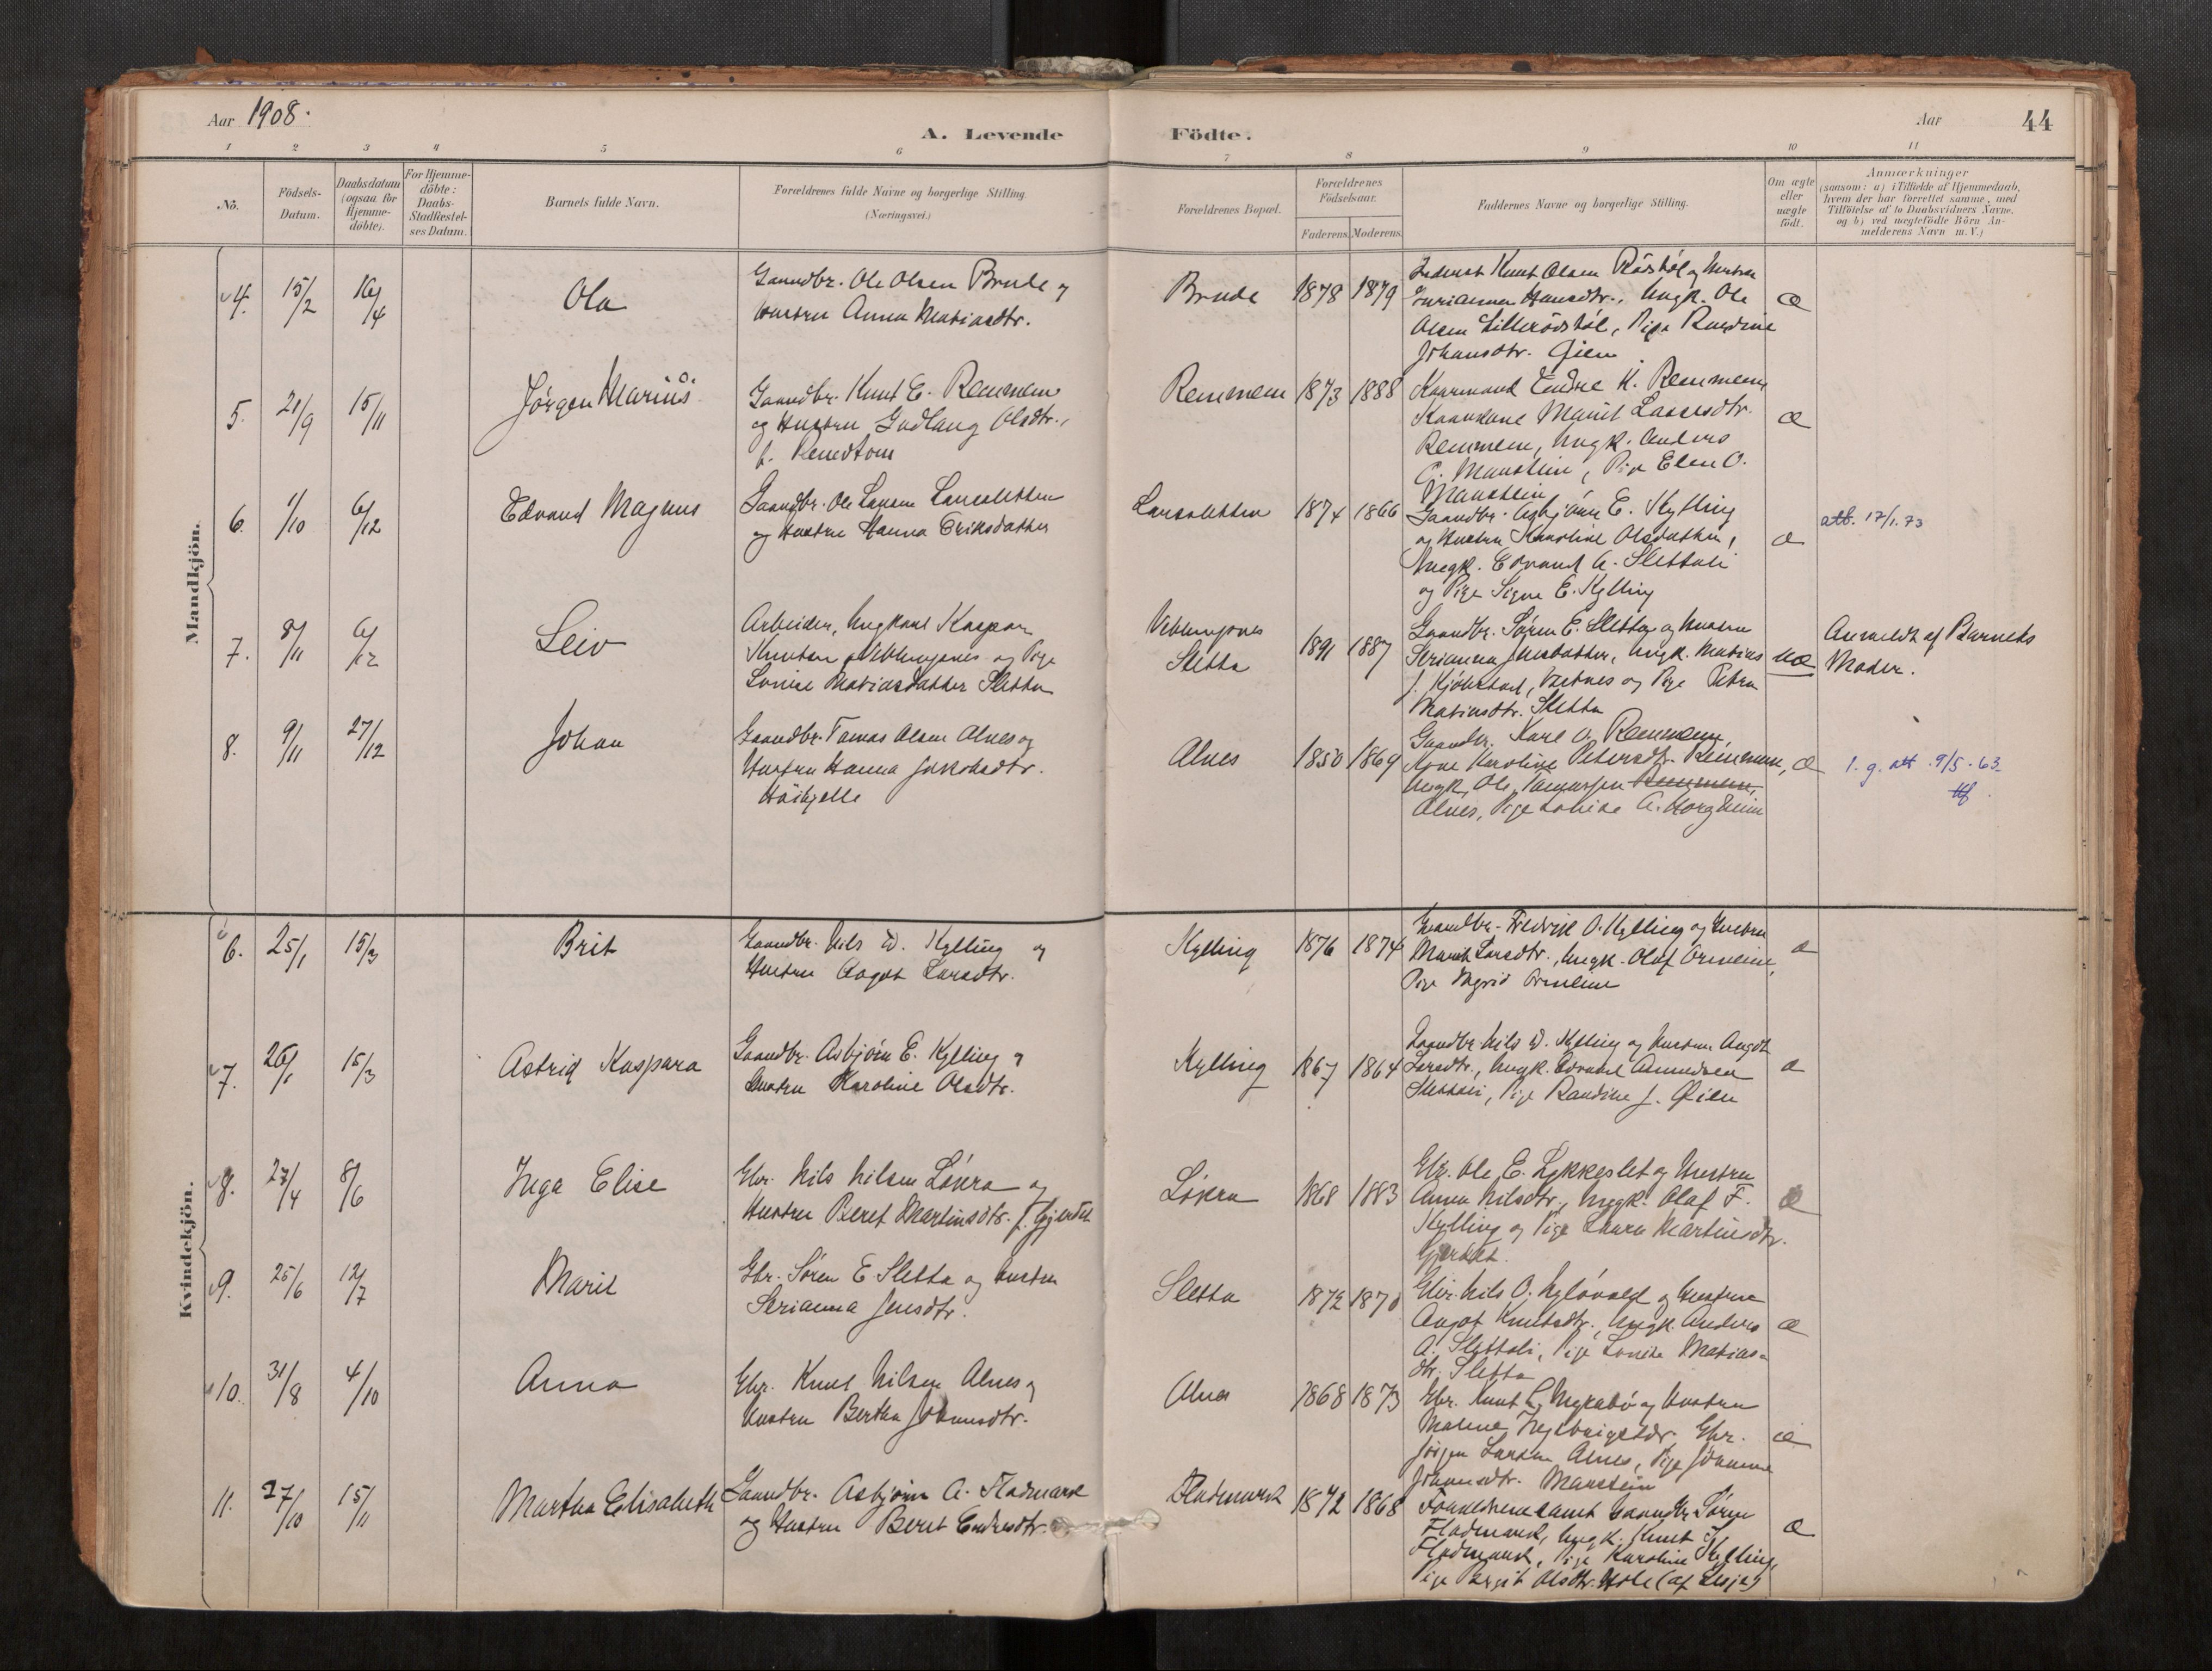 Aar 1908.
A. Levende Födte.
Aar
44
1 2 3 4 5 6 7 8 9 10 11
No.
Födsels-Datum.
Daabsdatum (ogsaa for Hjemme-döbte).
For Hjemme-döbte: Daabs-Stadfæstel-ses Datum.
Barnets fulde Navn.
Forældrenes fulde Navne og borgerlige Stilling.
(Næringsvei.)
Forældrenes Bopæl.
Forældrenes Födselsaar.
Faderens. Moderens.
Faddernes Navne og borgerlige Stilling.
Om ægte eller uægte födt.
Anmærkninger
(saasom: a) i Tilfælde af Hjemmedaab,
hvem der har forrettet samme, med
Tilföielse af to Daabsvidners Navne,
og b) ved uægtefödte Börn An-
melderens Navn m. V.)
Mandkjön.
4. 15/2 16/4 Ola
Gaardbr. Ole Olsen Brude og
Hustru Anna Matiasdtr.
Brude 1878 1879
Knut Olsen Rödstöl og Hustru
Hansdtr., Ungk. Ole
Olsen Lillerödstöl, Pige Randine
Johansdtr. Öien
æ
5. 21/9 15/11 Jörgen Marius
Gaardbr. Knut E. Remmem
og Hustru Gudlaug Olsdtr.,
Remmem 1873 1888
Kaarmand Endre K. Remmem,
Kaarkone Marit Lassesdtr.
Remmem, Ungk. Anders
O. Manstein, Pige Elen O.
Manstein
æ
6. 1/10 6/12 Edvard Magnus
Gaardbr. Ole Larsen
og Hustru Hanna Eriksdatter
1874 1866
Gaardbr. Asbjörn E. Kylling
og Hustru Karoline Olsdatter,
Ungk. Edvard A. Slettali
og Pige Signe E. Kylling
æ
att. 17/1.73
7. 8/11 6/12 Leiv
Arbeider, Ungkarl Kaspar
Knutsen Veblungsnes og Pige
Lovise Matiasdatter Sletta
Veblungsnes
Sletta
1891 1887
Gaardbr. Sören E. Sletta og Hustru
Serianna Jensdatter, Ungk. Matias
og Pige Petra
Matiasdtr. Sletta
uæ
Anmeldt af Barnets
Moder.
8. 9/11 27/12 Johan
Gaardbr. Tomas Olsen Alnes og
Hustru Hanna Jakobsdtr.
Alnes 1850 1869
Gaardbr. Karl O. Remmem,
Kone Karoline Petersdtr. Remmem,
Ungk. Ole Tomassen Remmem,
Alnes, Pige Lovise A. Horgheim
æ
1. g. att. 9/5.63.
Kvindekjön.
6. 25/1 15/3 Brit
Gaardbr. Nils D. Kylling og
Hustru Angot Larsdtr.
Kylling 1876 1874
Gaardbr. Fredrik O. Kylling og Hustru
Marit Larsdtr., Ungk. Olaf Ormeim,
Pige Ingrid Ormeim
æ
7. 26/1 15/3 Astrid Kaspara
Gaardbr. Asbjörn E. Kylling og
Hustru Karoline Olsdtr.
Kylling 1867 1864
Gaardbr. Nils D. Kylling og Hustru Angot
Larsdtr., Ungk. Edvard Amundsen
Slettali, Pige Randine J. Öien
æ
8. 27/4 8/6 Inga Elise
Gbr. Nils Nilsen Lövra og
Hustru Beret Martinsdtr. f. Gjerdet
Lövra 1868 1883
Gbr. Ole E. Lykkeslet og Hustru
Anna Nilsdtr., Ungk. Olaf F.
Kylling og Pige Laura Martinsdtr.
Gjerdet.
æ
9. 25/6 12/7 Marit
Gbr. Sören E. Sletta og Hustru
Serianna Jensdtr.
Sletta 1872 1870
Gbr. Nils O. og Hustru
Angot Knutsdtr., Ungk. Anders
A. Slettali, Pige Lovise Matias-
dtr. Sletta
æ
10. 31/8 4/10 Anna
Gbr. Knut Nilsen Alnes og
Hustru Bertha Johansdtr.
Alnes 1868 1873
Gbr. Knut L. Myrabö og Hustru
Malene Gbr.
Jörgen Larsen Alnes, Pige Johanne
Johansdtr. Manstein
æ
11. 27/10 15/11 Martha Elisabeth
Gaardbr. Asbjörn A. Fladmark
og Hustru Berit Endresdtr.
Fladmark 1872 1868
Forældrene samt Gaardbr. Sören
Fladmark, Ungk. Knut J.
Fladmark, Pige Karoline Kylling,
Pige Birgit Olsdtr. Hole (af Lesje)
æ